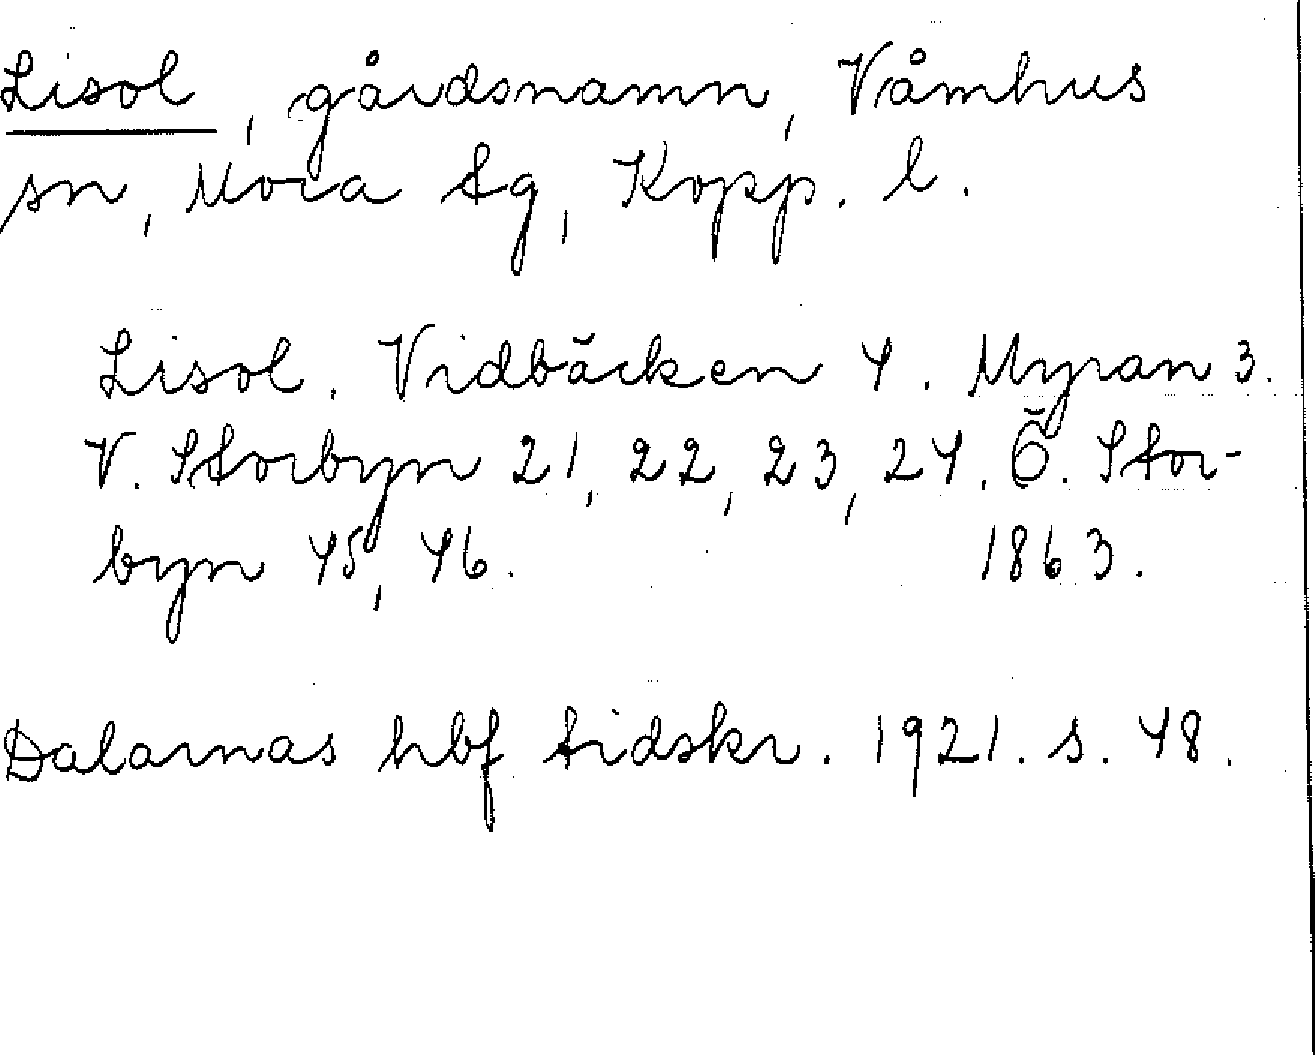 Lisol, gårdsnamn, Våmhus
sn, Mora tg, Kopp. l.
Lisol. Vidbäcken 4. Myran 3.
V. Storbyn 21, 22, 23, 24. Ö. Stor-
byn 45, 46. 1863.
Dalarnas hbf tidskr. 1921. s. 48.